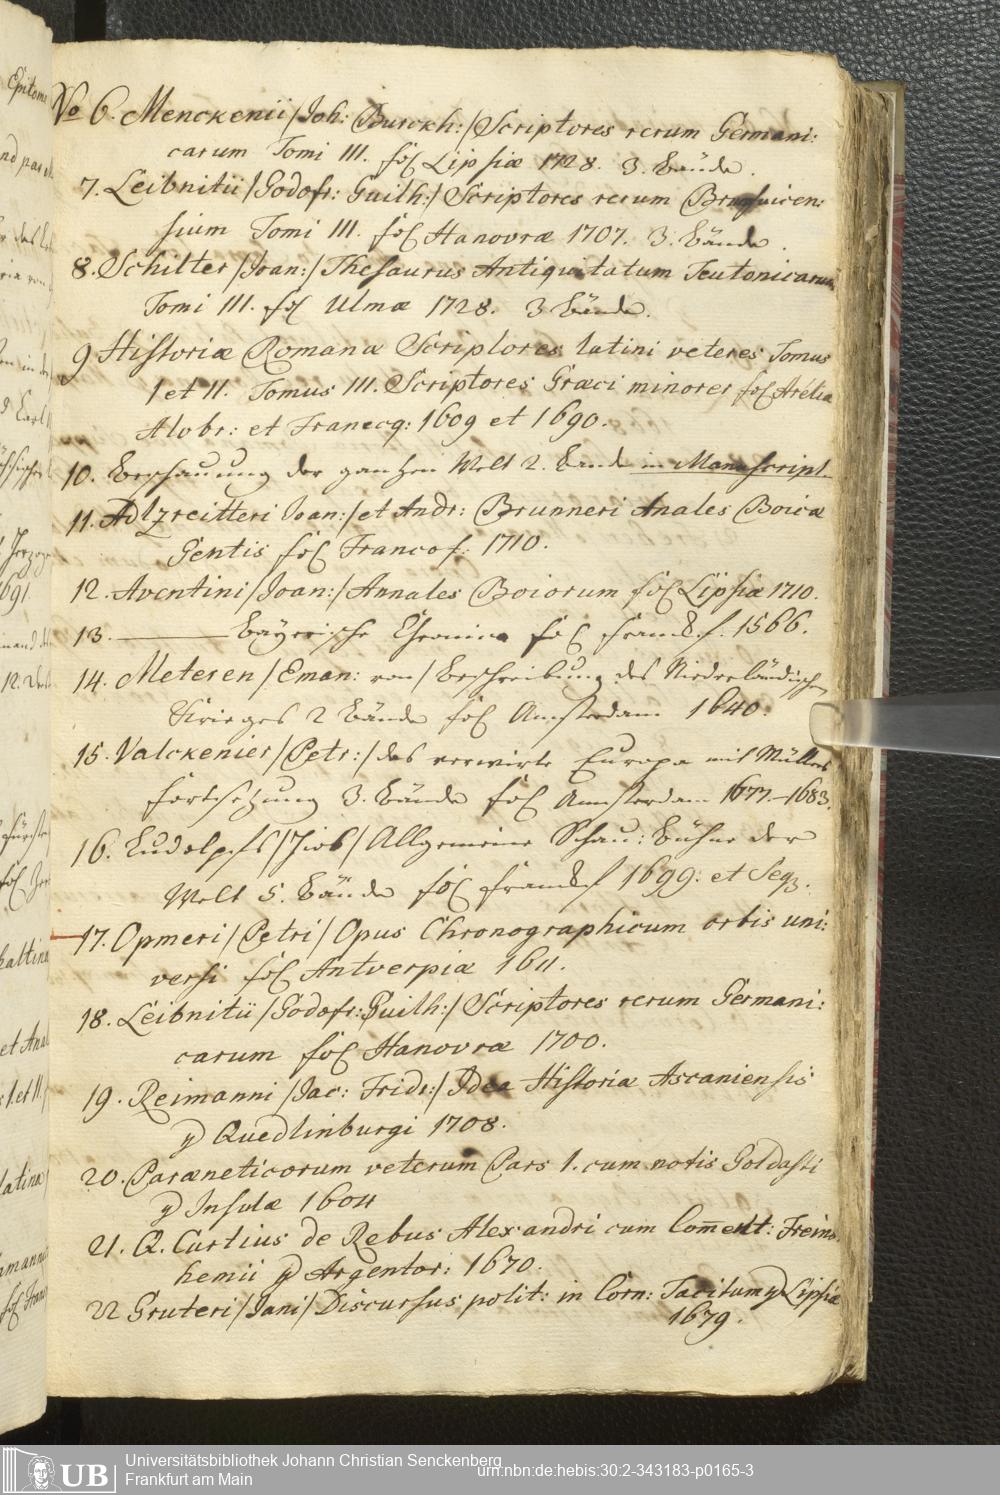 No 6. Menckenii /Joh: Burckh:/ Scriptores rerum Germani:
carum Tomi III. fol Lipsiæ 1728. 3. Bände.
7. Leibnitii /Godofr: Guilh:/ Scriptores rerum Brunsvicen:
sium Tomi III. fol Hanovræ 1707. 3. Bände.
8. Schilter /Joan:/ Thesaurus Antiquitatum Teutonicarum
Tomi III. fol Ulmæ 1728. 3 Bände.
9 Historiæ Romanæ Scriptores latini veteres Tomus
I et II. Tomus III. Scriptores Græci minores fol Aréliæ
Alobr: et Franecq: 1609 et 1690.
10. Beschauung der gantzen Welt 2. Bände in Manuscript.
11. Adlzreitteri Joan:/ et Andr: Brunneri Anales Boicæ
Gentis fol Francof: 1710.
12. Aventini /Joan:/ Annales Boiorum fol Lipsiæ 1710.
13. ——— Bayerische Chronica fol Franckf. 1566.
14. Meteren /Eman: von/ Beschreibung des Niederländischen
Krieges 2 Bände fol Amsterdam 1640.
15. Valckenier /Petr:/ das verwirte Europa mit Müllers
fortsetzung 3. Bände fol Amsterdam 1677.-1683.
16. Ludolphs /Jiob/ Allgemeine Schau: Bühne der
Welt 5. Bände fol Franckf 1699: et Seq.
17. Opmeri /Petri/ Opus Chronographicum orbis uni:
versi fol Antverpiæ 1611.
18. Leibnitii /Godofr: Guilh:/ Scriptores rerum Germani:
carum fol Hanovræ 1700.
19. Reimanni /Jac: Fridr:/ Idea Historiæ Ascaniensis
4 Quedlinburgi 1708.
20. Paræneticorum veterum Pars I. cum notis Goldasti
4 Insulæ 1604
21. Q. Curtius de Rebus Alexandri cum Com̄ent: Freins
hemii 4 Argentor: 1670.
22 Gruteri /Jani/ Discursus polit: in Corn: Tacitum 4 Lipsiæ
1679.
Universitätsbibliothek Johann Christian Senckenberg
Frankfurt am Main
urn:nbn:de:hebis:30:2-343183-p0165-3
UB